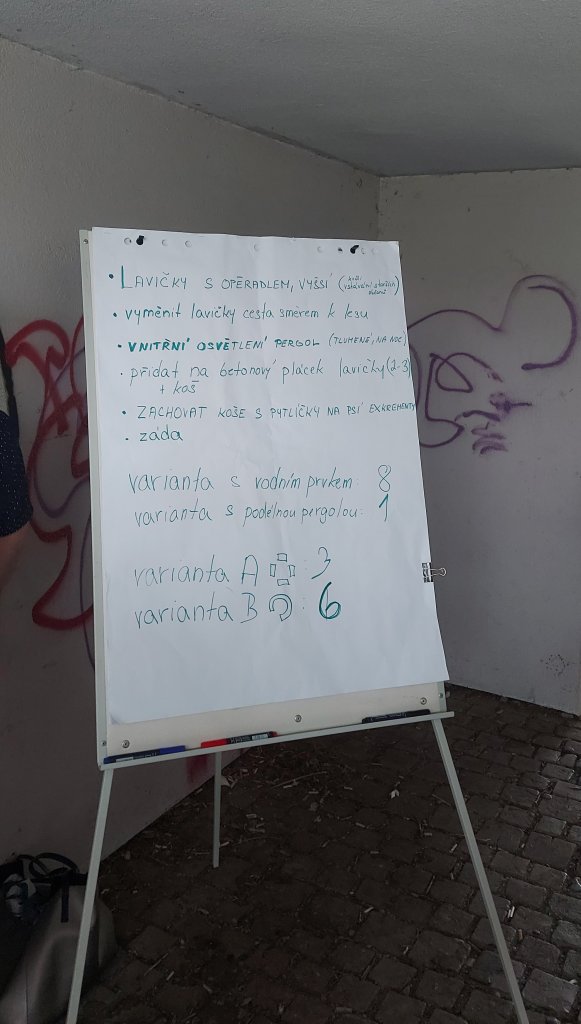 • LAVIČKY S OPĚRADLEM, VYŠŠÍ (kvůli vstávání starších občanů)
• vyměnit lavičky cesta směrem k lesu
• VNITŘNÍ OSVĚTLENÍ PERGOL (TLUMENÉ, NA NOC)
• přidat na betonový plácek lavičky (2-3)
+ koš
• ZACHOVAT KOŠE S PYTLÍČKY NA PSÍ EXKREMENTY
• záda
varianta s vodním prvkem: 8
varianta s podélnou pergolou: 1
varianta A : 3
varianta B : 6